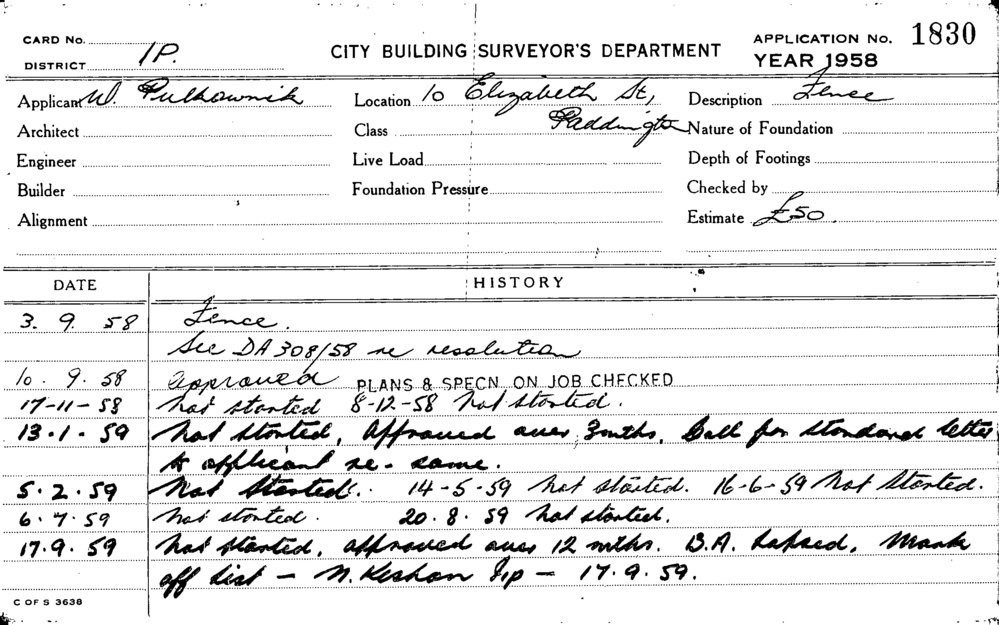 CARD No.
DISTRICT 1P.
CITY BUILDING SURVEYOR'S DEPARTMENT
APPLICATION No. 1830
YEAR 1958
Applicant W. Pulkownik
Location 10 Elizabeth St,
Paddington
Description Fence
Architect
Class
Nature of Foundation
Engineer
Live Load
Depth of Footings
Builder
Foundation Pressure
Checked by
Alignment
Estimate £50.
DATE HISTORY
3. 9. 58 Fence.
See DA 308/58 re resolution
10. 9. 58 Approved PLANS & SPECN ON JOB CHECKED
17-11-58 Not started 8-12-58 Not Started.
13.1.59 Not Started, Approved over 3mths. Call for standard letter
to applicant re-same.
5.2.59 Not Started. 14-5-59 Not started. 16-6-59 Not Started.
6.7.59 Not started. 20.8.59 Not started.
17.9.59 Not Started, approved over 12 mths. B.A. Lapsed. Mark
off List - 1p - 17.9.59.
C OF S 3638